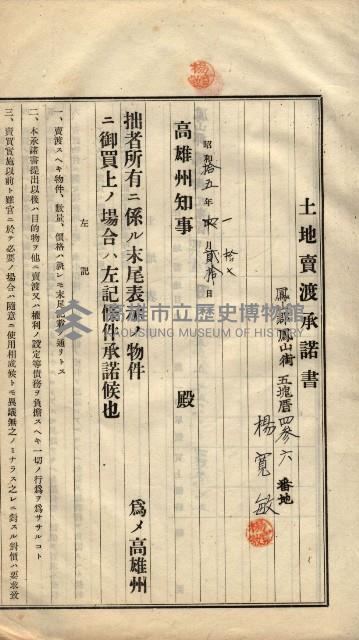 土地賣渡承諾書
鳳山郡鳳山街 五塊厝 四參六 番地
楊寬敏
昭和拾五年 月 日
高雄州知事 殿
爲メ高雄州
拙者所有ニ係ル末尾表示ノ物件
ニ御買上ノ場合ハ左記條件承諾候也
左記
一、賣渡スヘキ物件、數量、價格ハ總シモ末尾記載ノ通リトス
二、本承諾書提出以後ハ目的物ヲ他ニ賣渡又ハ權利ノ設定等債務ヲ負擔スヘキ一切ノ行爲ヲ爲ササルコト
三、賣買實施以前ト雖官ニ於テ必要ノ場合ハ隨意ニ使用相成候トモ異議無之ノミナラス之レニ對スル對價ハ要求致
高雄市立歷史博物館
KAOHSIUNG MUSEUM OF HISTORY